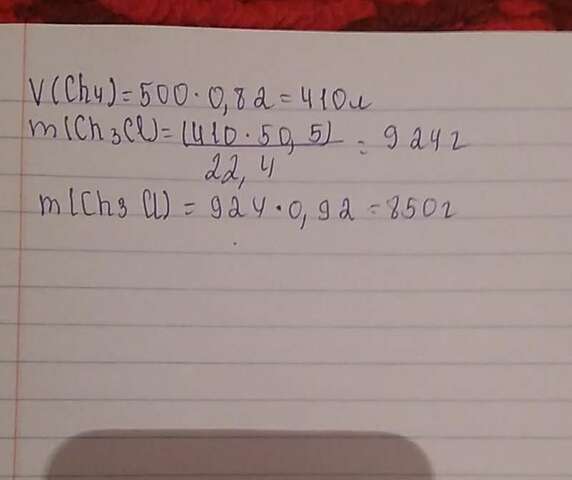 V(Ch4)=500·0,82=410л
m(Ch3Cl)=(410·50,5)/22,4=924г
m(Ch3Cl)=924·0,92=850г